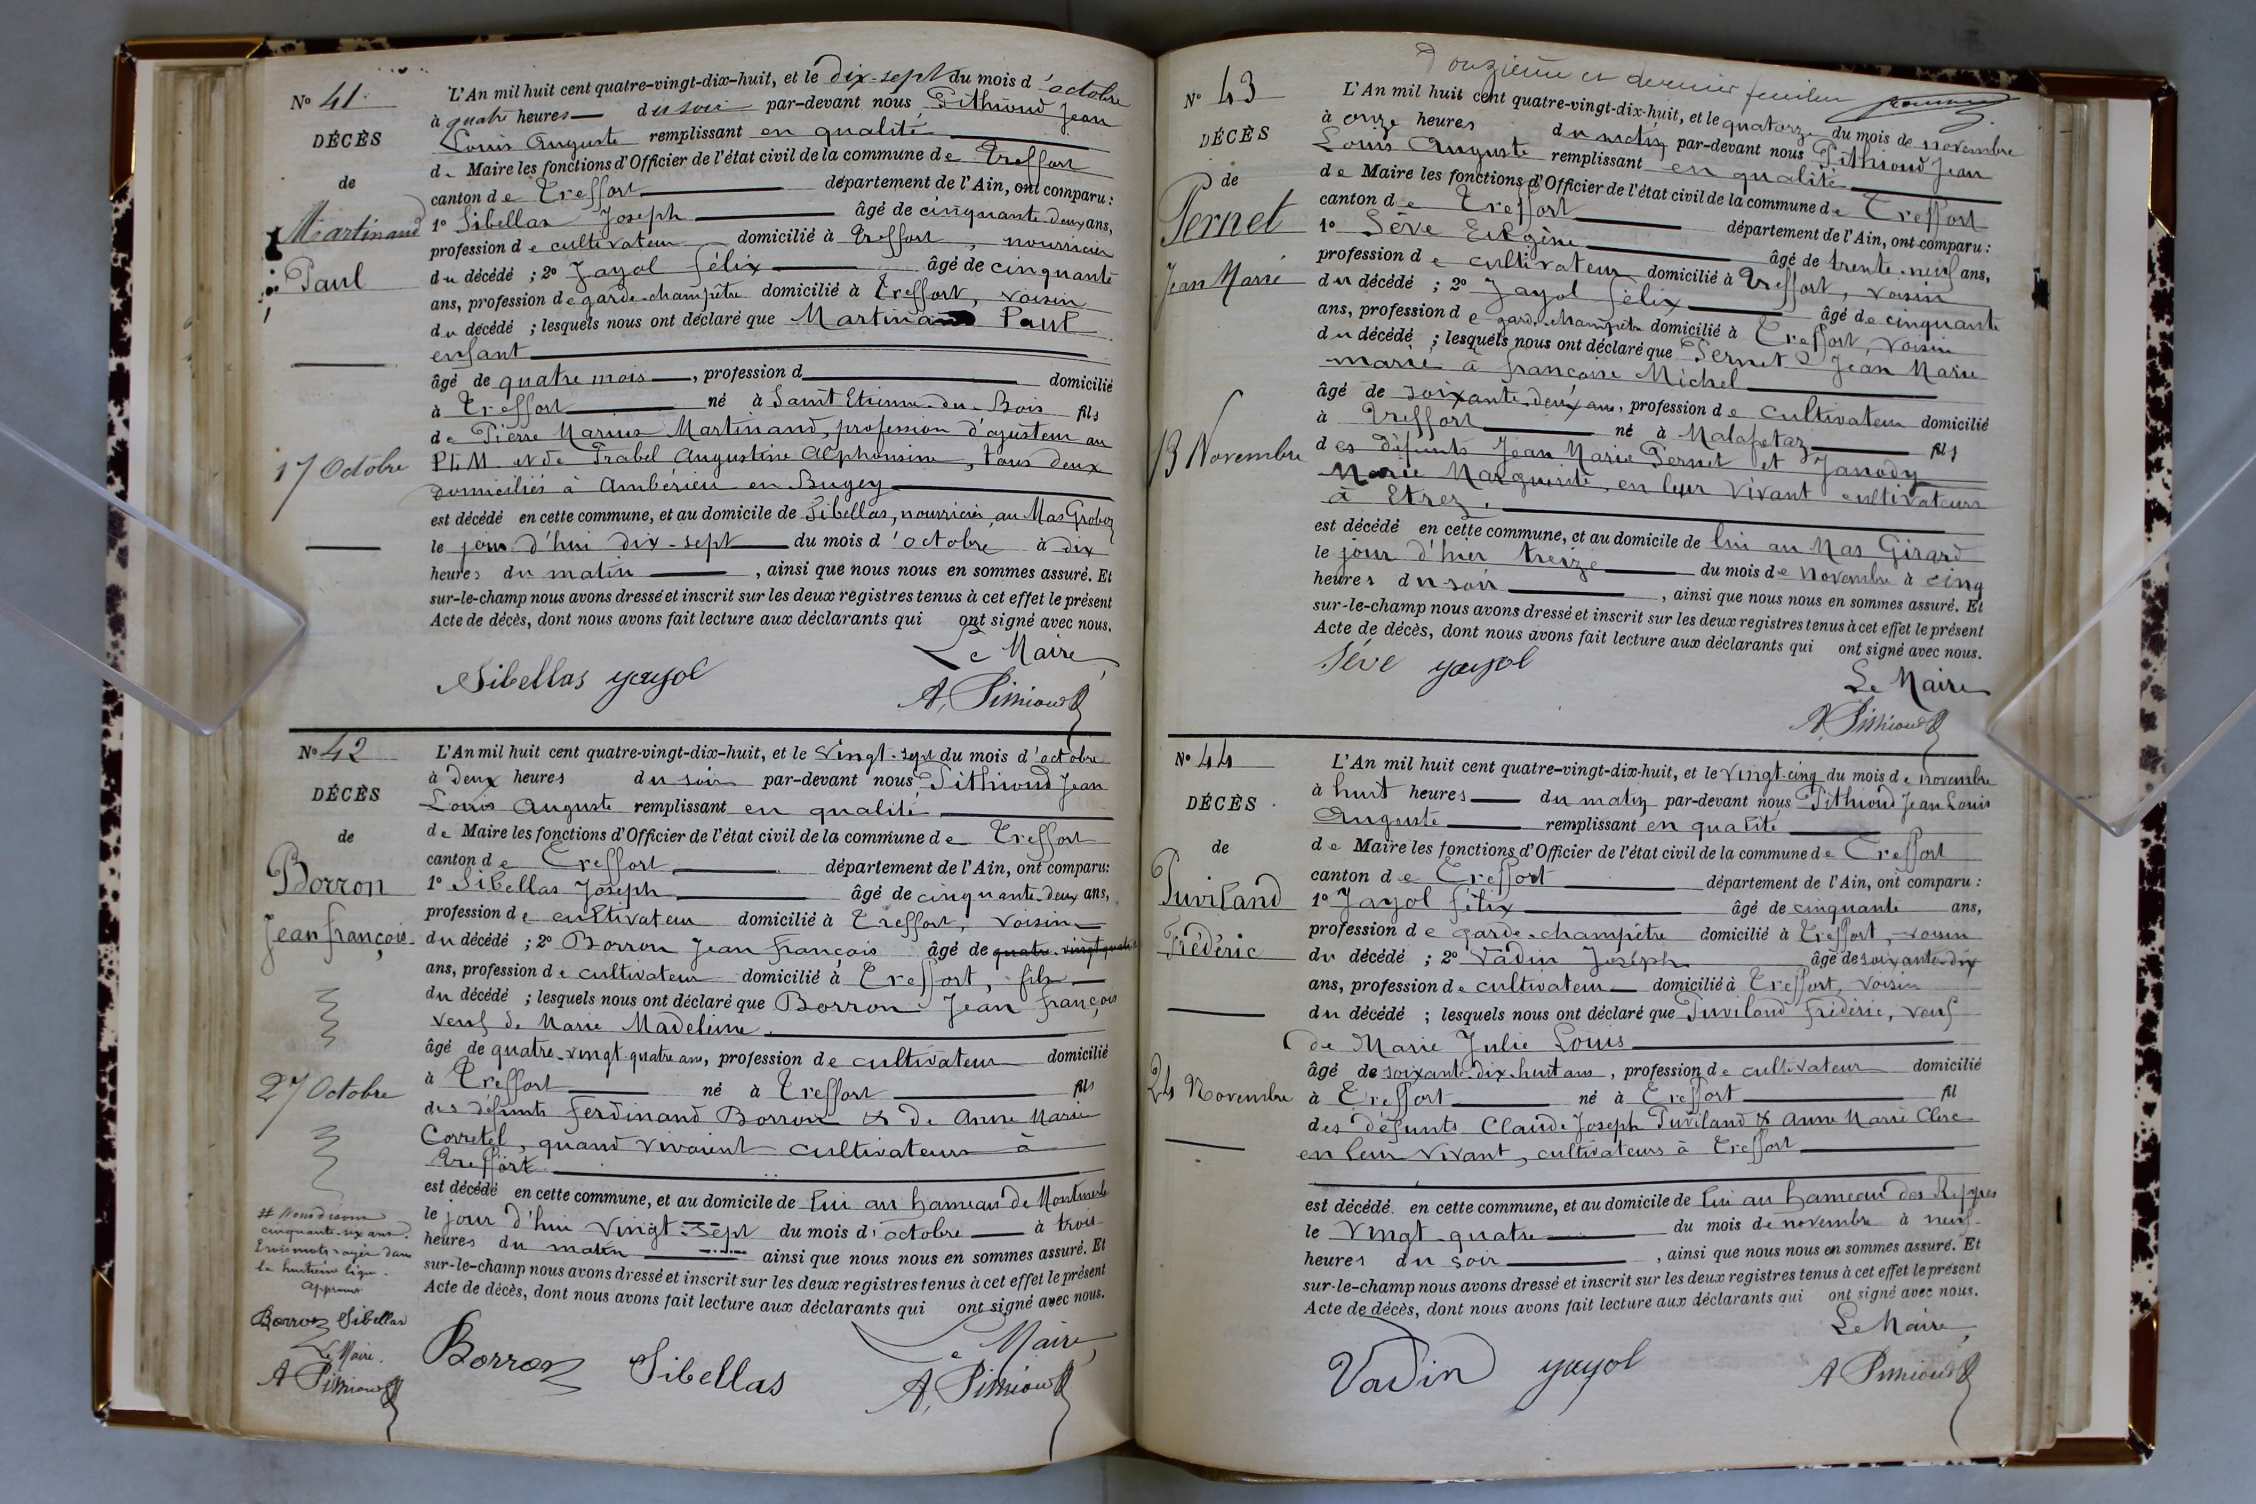 N° 41
DÉCÈS
de
Martinand
Paul
17 Octobre
L'An mil huit cent quatre-vingt-dix-huit, et le dix-sept du mois d'octobre
à quatre heures du soir par-devant nous Pithioud Jean
Louis Auguste remplissant en qualité
de Maire les fonctions d'Officier de l'état civil de la commune de Treffort
canton de Treffort département de l'Ain, ont comparu :
1° Sibellas Joseph âgé de cinquante deux ans,
profession de cultivateur domicilié à Treffort, nourricier
du décédé ; 2° Jayol Félix âgé de cinquante
ans, profession de garde-champêtre domicilié à Treffort, voisin
du décédé ; lesquels nous ont déclaré que Martinand Paul
enfant
âgé de quatre mois, profession d domicilié
à Treffort né à Saint Etienne-du-Bois fils
de Pierre Marius Martinand, profession d'ajusteur au
P.L.M. et de Prabel Augustine Alphonsine, tous deux
domiciliés à Ambérieu en Bugey
est décédé en cette commune, et au domicile de Sibellas, nourricier, au Mas Groboz
le jour d'hui dix-sept du mois d'octobre à dix
heures du matin, ainsi que nous nous en sommes assuré. Et
sur-le-champ nous avons dressé et inscrit sur les deux registres tenus à cet effet le présent
Acte de décès, dont nous avons fait lecture aux déclarants qui ont signé avec nous.
Le Maire
Sibellas yayol
A, Pithioud
N° 42
DÉCÈS
de
Borron
Jean françois
27 Octobre
# Nous disons
cinquante-six ans.
Trois mots rayés dans
la huitième ligne.
Approuvé
Borron Sibellas
Le Maire.
A Pithioud
L'An mil huit cent quatre-vingt-dix-huit, et le vingt-sept du mois d'octobre
à deux heures du soir par-devant nous Pithioud Jean
Louis Auguste remplissant en qualité
de Maire les fonctions d'Officier de l'état civil de la commune de Treffort
canton de Treffort département de l'Ain, ont comparu :
1° Sibellas Joseph âgé de cinquante-deux ans,
profession de cultivateur domicilié à Treffort, voisin
du décédé ; 2° Borron Jean françois âgé de quatre-vingt quatre
ans, profession de cultivateur domicilié à Treffort, fils
du décédé ; lesquels nous ont déclaré que Borron Jean françois
veuf de Marie Madeleine.
âgé de quatre-vingt quatre ans, profession de cultivateur domicilié
à Treffort né à Treffort fils
des défunts Ferdinand Borron & de Anne Marie
Corretel, quand vivaient cultivateurs à
Treffort
est décédé en cette commune, et au domicile de lui au hameau de Montmerle
le jour d'hui vingt-sept du mois d'octobre à trois
heures du matin ainsi que nous nous en sommes assuré. Et
sur-le-champ nous avons dressé et inscrit sur les deux registres tenus à cet effet le présent
Acte de décès, dont nous avons fait lecture aux déclarants qui ont signé avec nous.
Le Maire,
Borron Sibellas
A, Pithioud
Douzième et dernier feuillet
N° 43
DÉCÈS
de
Pernet
Jean Marie
13 Novembre
L'An mil huit cent quatre-vingt-dix-huit, et le quatorze du mois de novembre
à onze heures du matin par-devant nous Pithioud Jean
Louis Auguste remplissant en qualité
de Maire les fonctions d'Officier de l'état civil de la commune de Treffort
canton de Treffort département de l'Ain, ont comparu :
1° Sève Eugène âgé de trente-neuf ans,
profession de cultivateur domicilié à Treffort, voisin
du décédé ; 2° Jayol Félix âgé de cinquante
ans, profession de garde-champêtre domicilié à Treffort, voisin
du décédé ; lesquels nous ont déclaré que Pernet Jean Marie
marié à françoise Michel
âgé de soixante-deux ans, profession de cultivateur domicilié
à Treffort né à Malafretaz fils
des défunts Jean Marie Pernet et Janody
Marie Marguerite, en leur vivant cultivateurs
à Etrez.
est décédé en cette commune, et au domicile de lui au Mas Girard
le jour d'hier treize du mois de novembre à cinq
heures du soir, ainsi que nous nous en sommes assuré. Et
sur-le-champ nous avons dressé et inscrit sur les deux registres tenus à cet effet le présent
Acte de décès, dont nous avons fait lecture aux déclarants qui ont signé avec nous.
Sève yayol
Le Maire
A, Pithioud
N° 44
DÉCÈS
de
Puviland
Frédéric
24 Novembre
L'An mil huit cent quatre-vingt-dix-huit, et le vingt-cinq du mois de novembre
à huit heures du matin par-devant nous Pithioud Jean Louis
Auguste remplissant en qualité
de Maire les fonctions d'Officier de l'état civil de la commune de Treffort
canton de Treffort département de l'Ain, ont comparu :
1° Jayol Félix âgé de cinquante ans,
profession de garde-champêtre domicilié à Treffort, voisin
du décédé ; 2° Vadin Joseph âgé de soixante-dix
ans, profession de cultivateur domicilié à Treffort, voisin
du décédé ; lesquels nous ont déclaré que Puviland Frédéric, veuf
de Marie Julie Louis
âgé de soixante-dix-huit ans, profession de cultivateur domicilié
à Treffort né à Treffort fil
des défunts Claude Joseph Puviland & Anne Marie Clerc
en leur vivant, cultivateurs à Treffort
est décédé en cette commune, et au domicile de lui au hameau des
le vingt-quatre du mois de novembre à neuf
heures du soir, ainsi que nous nous en sommes assuré. Et
sur-le-champ nous avons dressé et inscrit sur les deux registres tenus à cet effet le présent
Acte de décès, dont nous avons fait lecture aux déclarants qui ont signé avec nous.
Le Maire,
Vadin yayol
A Pithioud